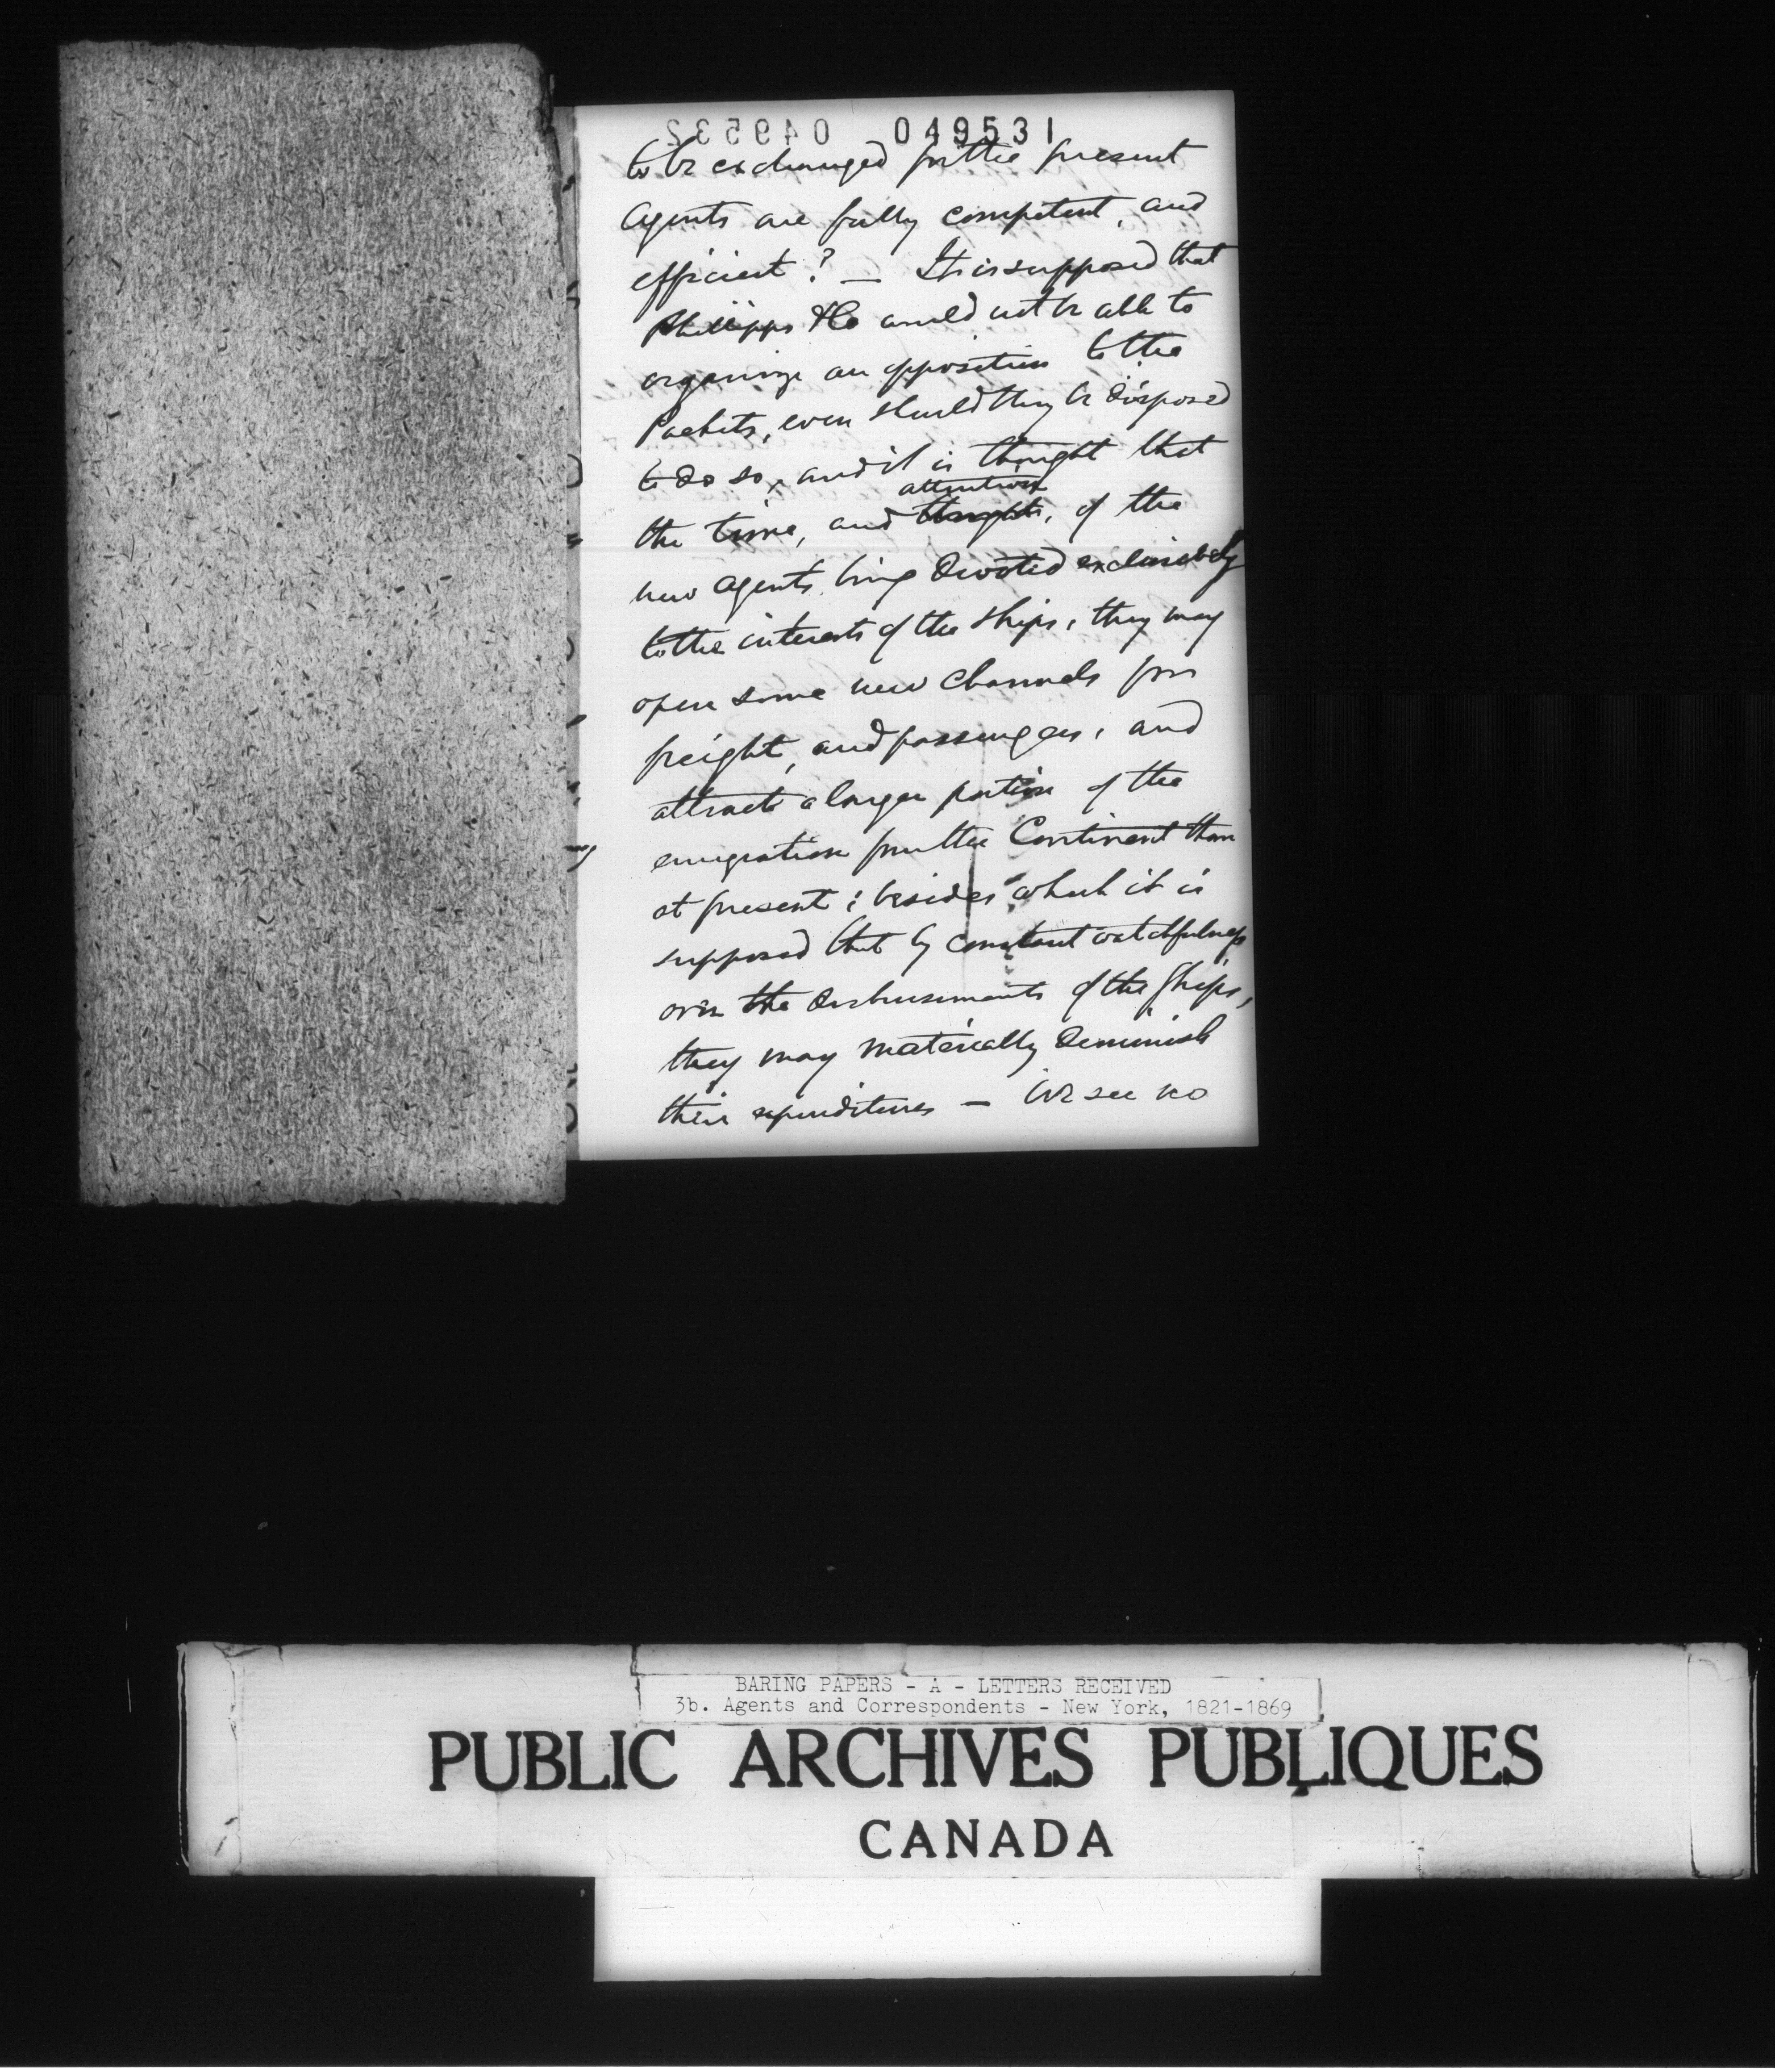 049531
to be exchanged for the present
Agents are fully competent, and
efficient? — It is supposed that
Phillipps &Co would not be able to
organize an opposition to the
Packets, even should they be disposed
to do so, and it is thought that
attention
the time, and thoughts, of the
new agents being devoted exclusively
to the interests of the ships, they may
open some new channels for
freight, and passengers, and
attract a larger portion of the
emigration from the Continent than
at present; besides which it is
supposed that by constant watchfulness
over the disbursements of the ships,
they may materially diminish
their expenditures — We see no
BARING PAPERS - A - LETTERS RECEIVED
3b. Agents and Correspondents - New York, 1821-1869
PUBLIC ARCHIVES PUBLIQUES
CANADA